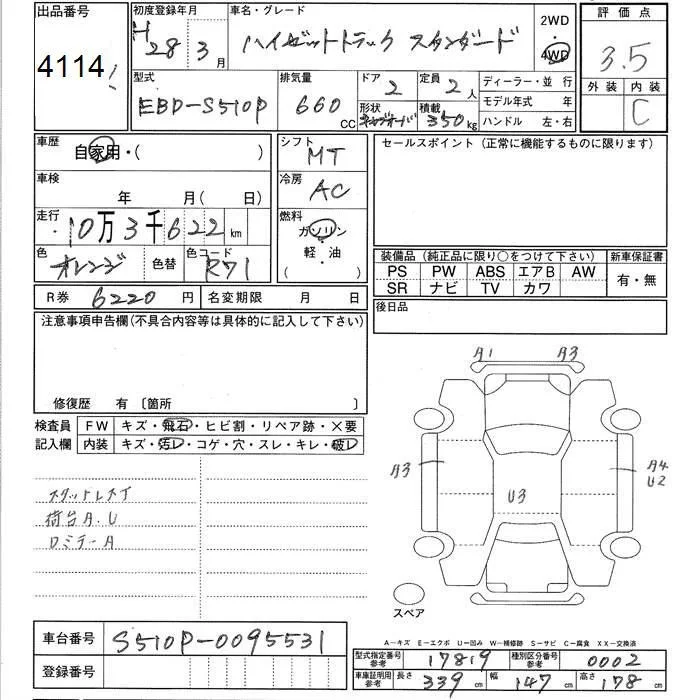 出品番号
4114
初度登録年月
H28 3月
車名・グレード
ハイゼットトラック スタンダード
2WD
4WD
評価点
3.5
外装 内装
C
型式
EBD-S510P
排気量
660 CC
ドア
2
定員
2人
形状
積載
350kg
ディーラー・並行
モデル年式 年
ハンドル 左・右
車歴
自家用・( )
シフト
MT
セールスポイント(正常に機能するものに限ります)
車検
年 月( 日)
冷房
AC
走行
10万3千622km
燃料
ガソリン
軽・油
( )
色
オレンジ
色替
色コード
R71
装備品(純正品に限り○をつけて下さい)
新車保証書
PS PW ABS エアB AW
SR ナビ TV カワ
有・無
R券 6220円
名変期限 月 日
後日品
注意事項申告欄(不具合内容等は具体的に記入して下さい)
修復歴 有 〔箇所 〕
検査員
記入欄
FW キズ・飛石・ヒビ割・リペア跡・×要
内装 キズ・汚D・コゲ・穴・スレ・キレ・破D
スタットレスT
荷台A.U
ロミラーA
A1 A3
A3
U3
A4
U2
スペア
A-キズ E-エクボ U-凹み W-補修跡 S-サビ C-腐食 XX-交換済
車台番号
S510P-0095531
登録番号
型式指定番号
参考
17819
種別区分番号
参考
0002
車庫証明用
参考
長さ
339cm
幅
147cm
高さ
178cm